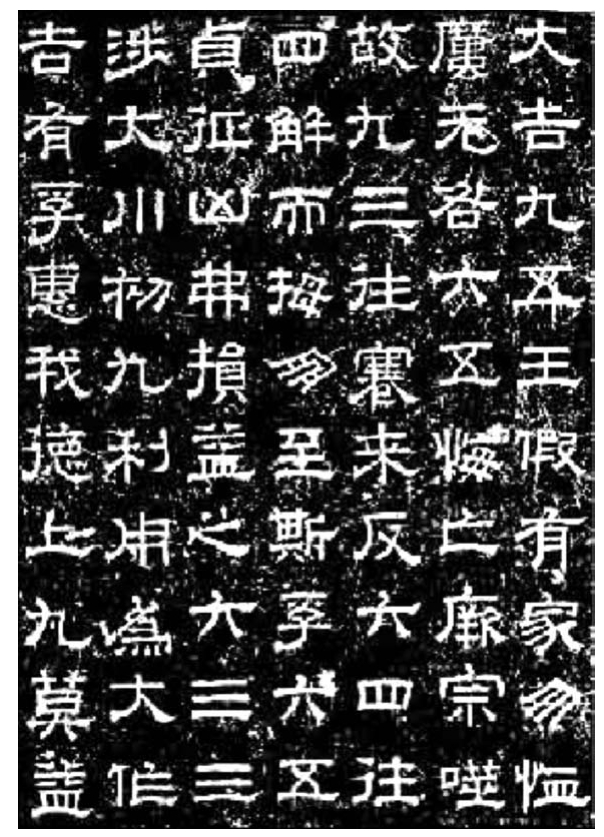 大吉九五王假有家勿恤
厲无咎六五悔亡厥宗噬
故九三往蹇来反六四往
四解而拇朋至斯孚六五
貞征凶弗損益之六三三
涉大川初九利用為大作
吉有孚惠我德上九莫益